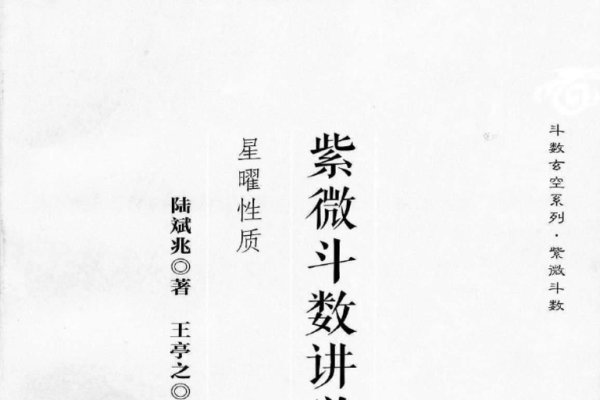 斗数玄空系列·紫微斗数
紫微斗数讲
星曜性质
陆斌兆◎著 王亭之◎